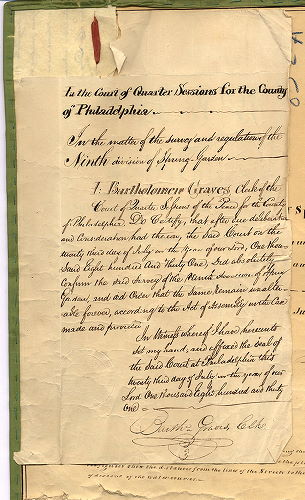 In the Court of Quarter Sessions for the County
of Philadelphia
In the matter of the survey and regulation of the
Ninth division of Spring Garden
I. Bartholomew Graves Clerk of the
Court of Quarter Sessions of the Peace for the County
of Philadelphia. Do Certify, that after due deliberation
and Consideration had the said Court on the
twenty third day of July in the Year of our Lord, One thou-
sand Eight hundred and thirty One, did absolutely
Confirm the said Survey of the Ninth division of Spring
Garden, and do Order that the Same Remain unalter-
able forever, according to the Act of Assembly in the Case
made and provided
In Witness whereof I have hereunto
set my hand, and affixed the Seal of
the said Court at Philadelphia this
twenty third day of July in the year of our
Lord One thousand Eight hundred and thirty
One
Barthw Graves Clk.